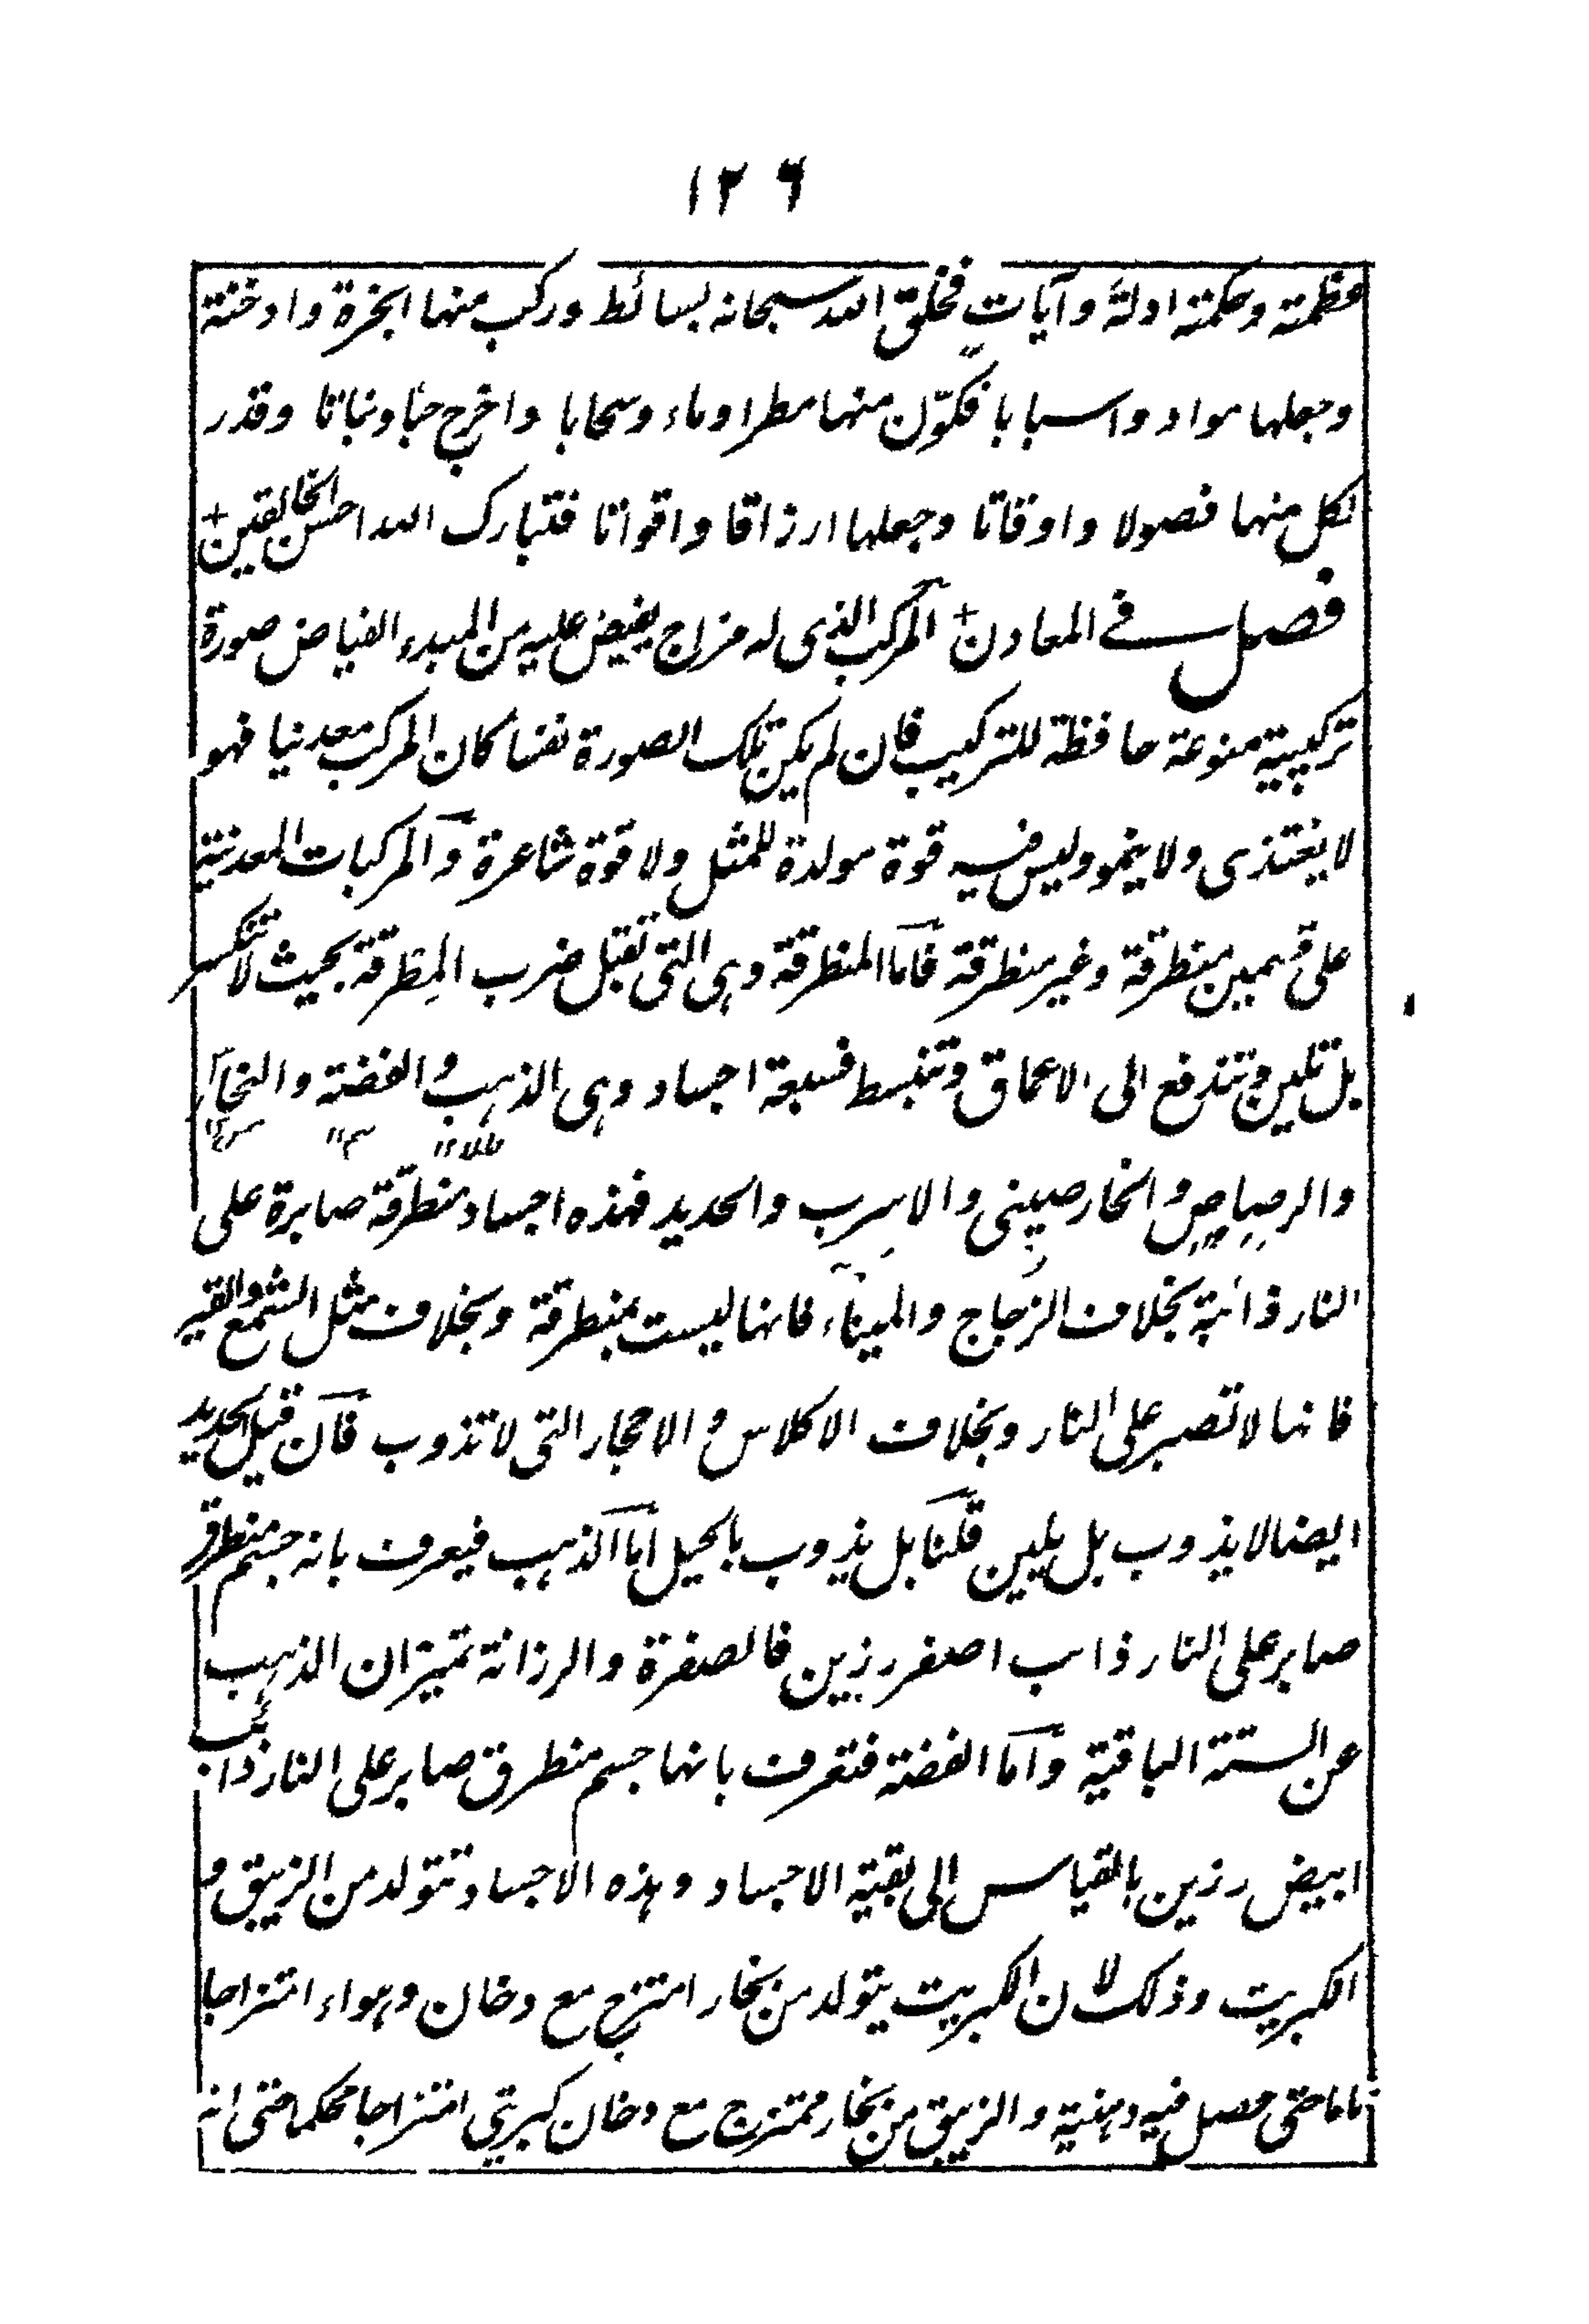 ١٢٦
عظمته وحكمته ادلة وآيات فخلق الله سبحانه بسائط وركب منها ابخرة وادخنة
وجعلها مواد واسبابا فكوّن منها مطرا وماء وسحابا واخرج حبا ونباتا وقدر
لكل منها فصولا واوقاتا وجعلها ارزاقا واقواتا فتبارك الله احسن الخالقين +
فصل في المعادن + المركب الذى له مزاج يفيض عليه من المبدء الفياض صورة
تركيبية منوعة حافظة للتركيب فان لم يكن تلك الصورة نفسا كان المركب معدنيا فهو
لا يغتذى ولا ينمو وليس فيه قوة مولدة للمثل ولا قوة شاعرة والمركبات المعدنية
على قسمين منطرقة وغير منطرقة فاما المنطرقة وهى التى تقبل ضرب المِطرقة بحيث لا تنكسر
بل تلين وتندفع الى الاعماق وتنبسط فسبعة اجساد وهى الذهب والفضة والنحاس
والرصاص والخارصينى والاسرب والحديد فهذه اجساد منطرقة صابرة على
النار ذائبة بخلاف الزجاج والميناء فانها ليست بمنطرقة وبخلاف مثل الشمع والقير
فانها لا تصبر على النار وبخلاف الاكلاس والاحجار التى لا تذوب فان قيل الحديد
ايضا لا يذوب بل يلين قلنا بل يذوب بالحيل اما الذهب فيعرف بانه جسم منطرق
صابر على النار ذائب اصفر رزين فالصفرة والرزانة تميزان الذهب
عن الستة الباقية واما الفضة فتعرف بانها جسم منطرق صابر على النار ذائب
ابيض رزين بالقياس الى بقية الاجساد وهذه الاجساد تتولد من الزيبق و
الكبريت وذلك لان الكبريت يتولد من بخار امتزج مع دخان وهواء امتزاجا
تاما حتى حصل فيه دهنية والزيبق من بخار ممتزج مع دخان كبريتي امتزاجا محكما حتى انه